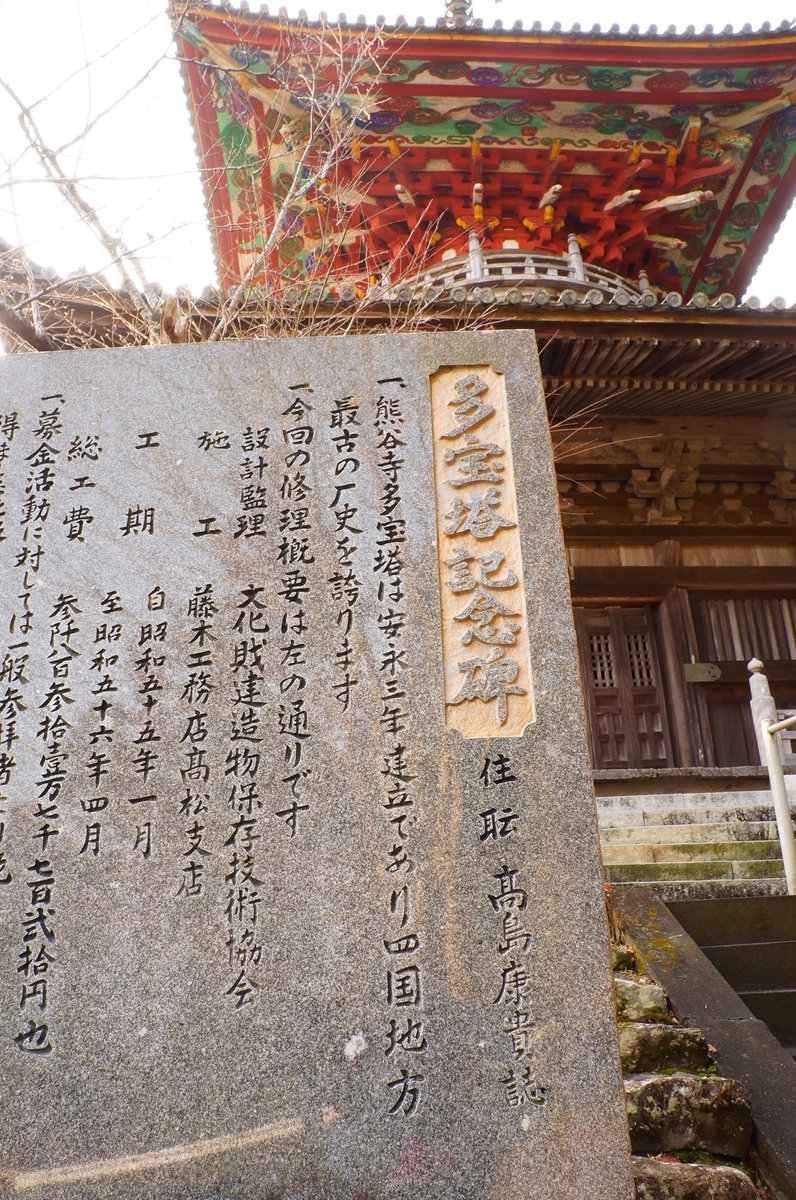 多宝塔記念碑
住職 高島康貴誌
一、熊谷寺多宝塔は安永三年建立であり四国地方
最古の厂史を誇ります
一、今回の修理概要は左の通りです
設計監理 文化財建造物保存技術協会
施工 藤木工務店高松支店
工期 自昭和五十五年一月
至昭和五十六年四月
総工費 参阡八百参拾壱万七千七百弐拾円也
一、募金活動に対しては一般参拝者より